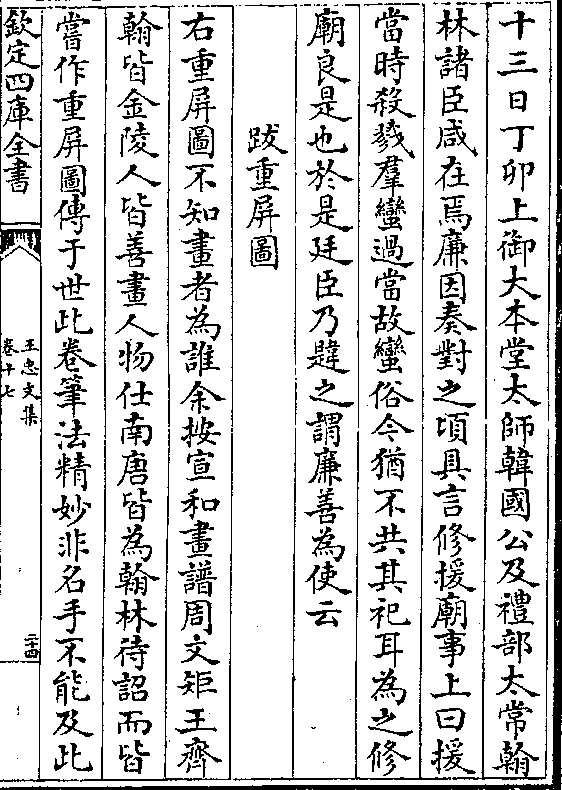 十三日丁卯上御大本堂太師韓國公及禮部太常翰
林諸臣咸在焉廉因奏對之頃具言修援廟事上曰援
當時殺戮羣蠻過當故蠻俗今猶不共其祀耳為之修
廟良是也於是廷臣乃韙之謂廉善為使云
跋重屏圖
右重屏圖不知畫者為誰余按宣和畫譜周文矩王齊
翰皆金陵人皆善畫人物仕南唐皆為翰林待詔而皆
嘗作重屏圖傳于世此卷筆法精妙非名手不能及此
欽定四庫全書
王忠文集
卷十七
二十四